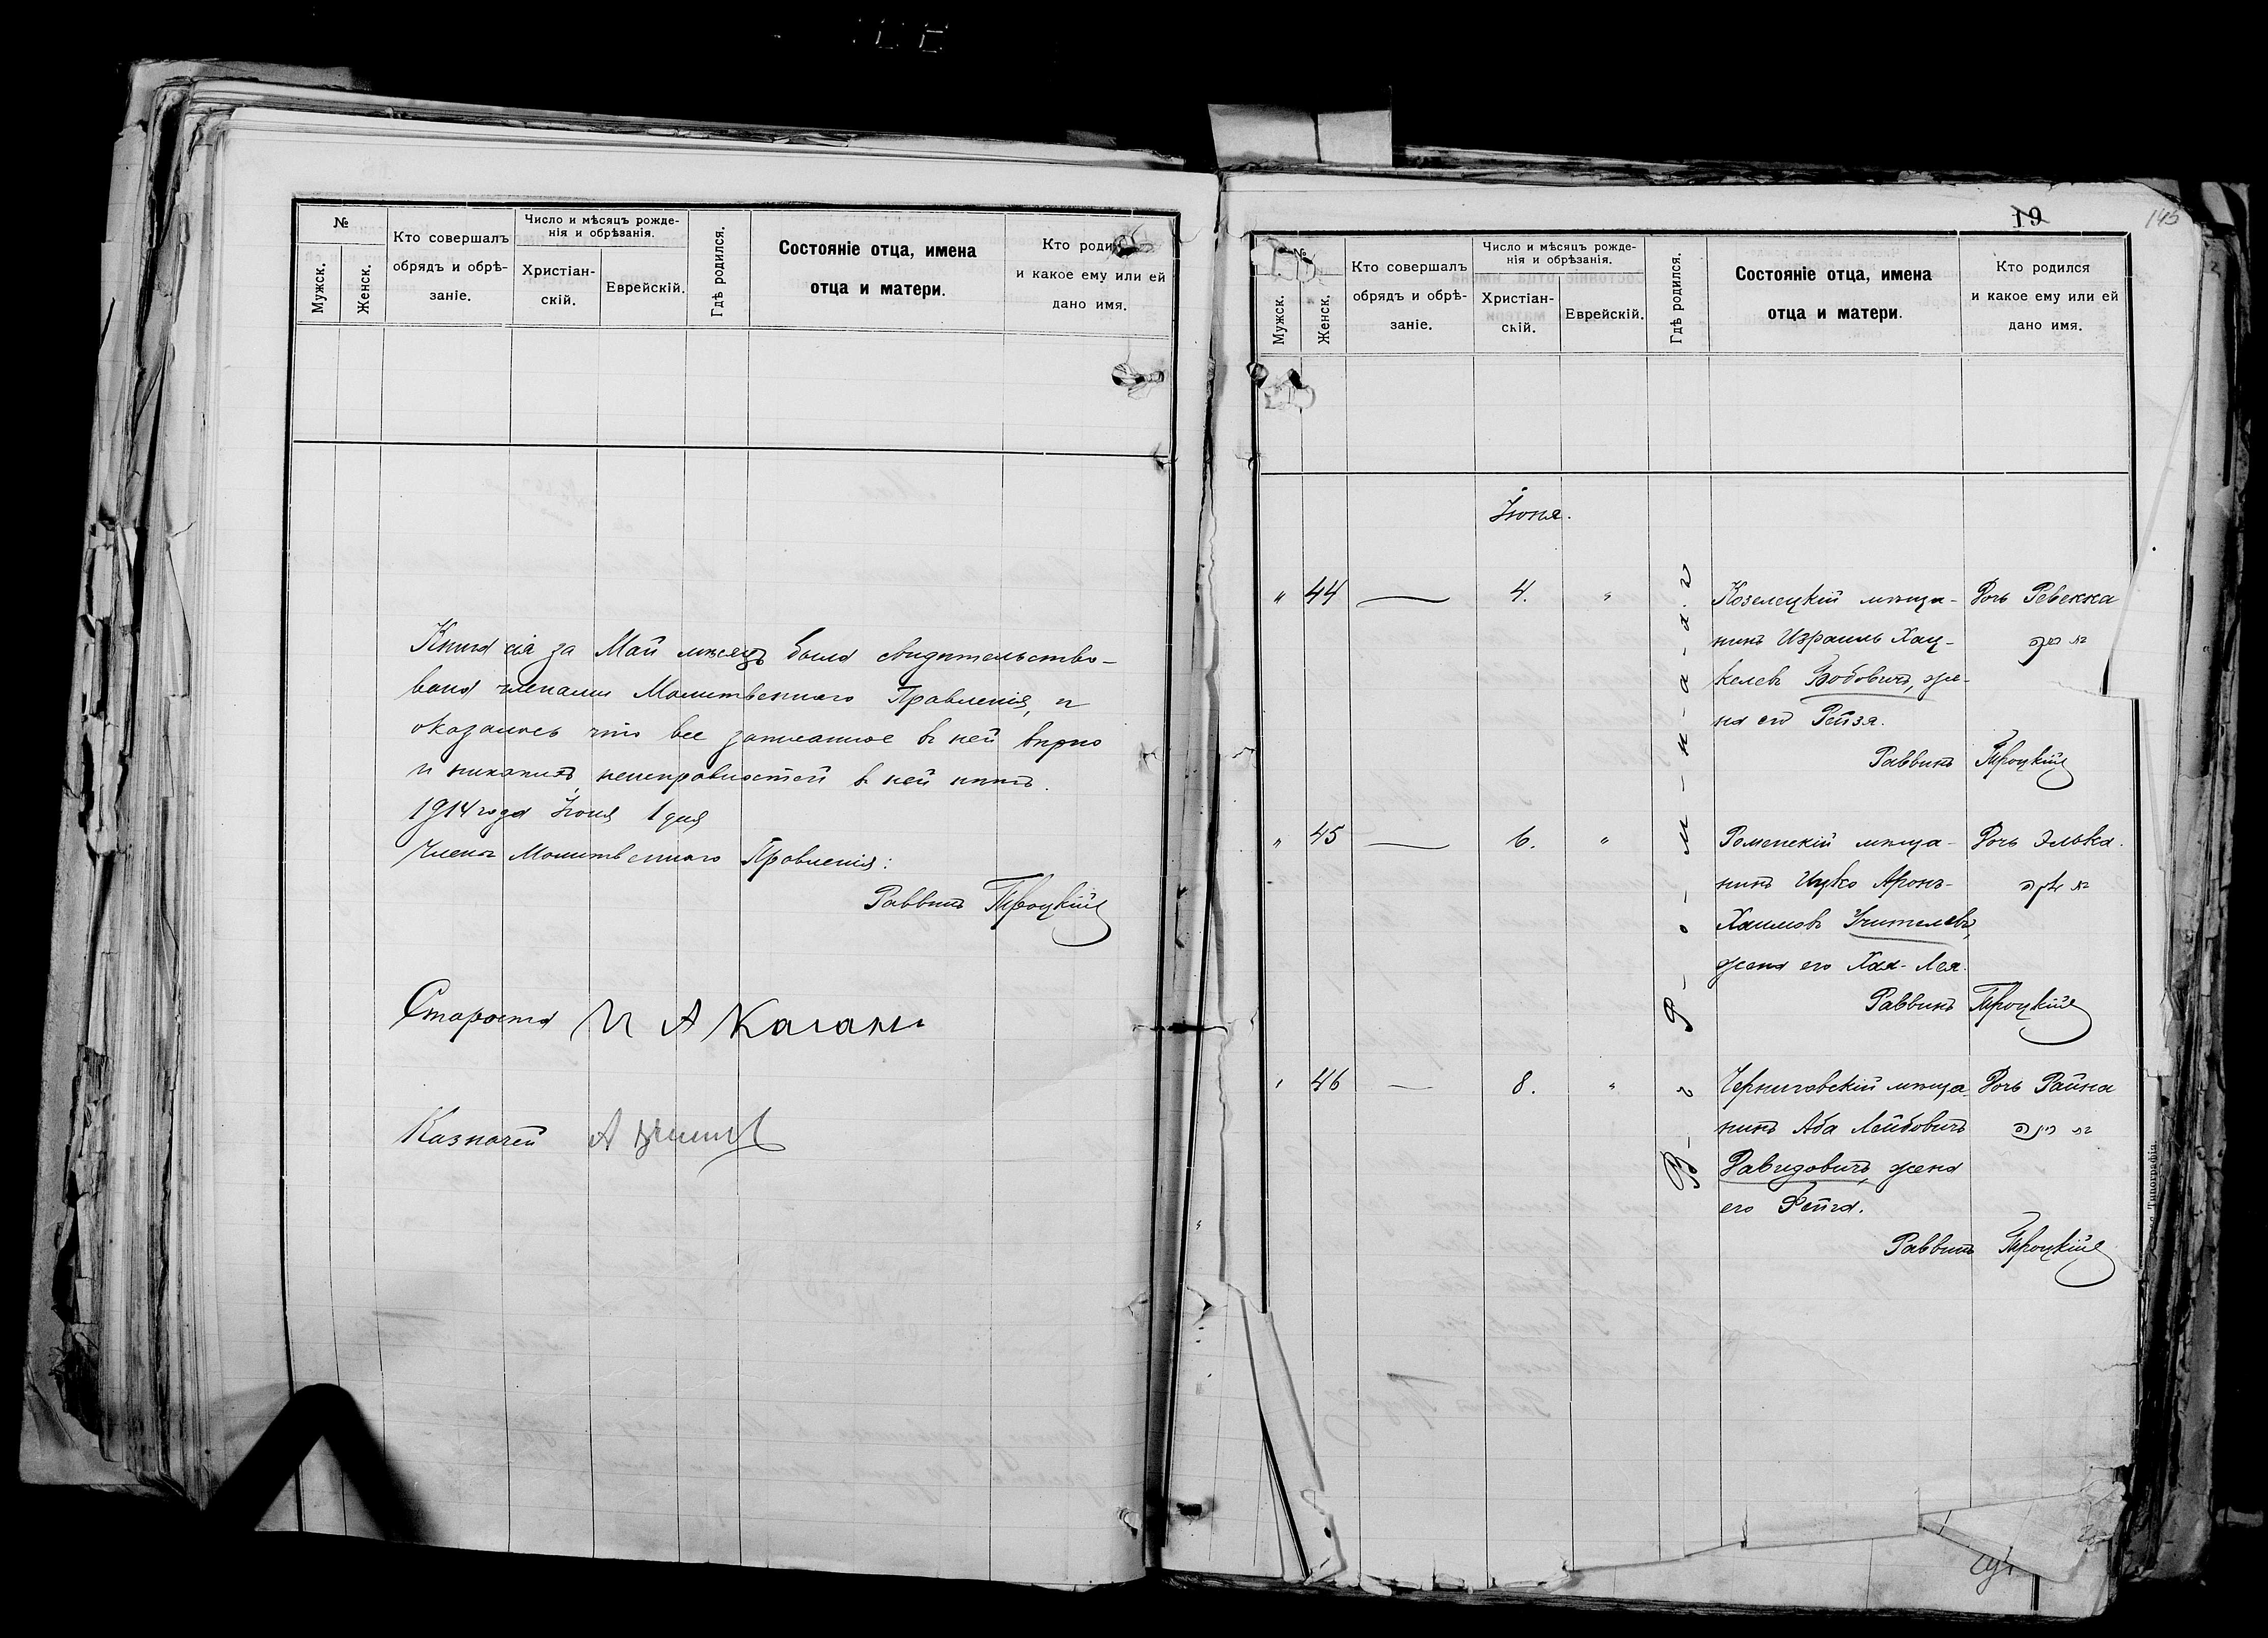 №
Мужск.
Женск.
Кто совершалъ
обрядъ и обрѣ-
заніе.
Число и мѣсяцъ рожде-
нія и обрѣзанія.
Христіан-
скій.
Еврейскій.
Гдѣ родился.
Состояніе отца, имена
отца и матери.
Кто роди
и какое ему или ей
дано имя.
Книга сія за Май мѣсяцъ была свидѣтельство-
вана членами Молитвеннаго Правленія, и
оказалось что все записанное въ ней вѣрно
и никакихъ неисправностей въ ней нѣтъ.
1914 года Іюня 1 дня
Члены Молитвеннаго Правленія:
Раввинъ Троцкій
Староста И А Каганъ
Казначей А
19
145
№
Мужск.
Женск.
Кто совершалъ
обрядъ и обрѣ-
заніе.
Число и мѣсяцъ рожде-
нія и обрѣзанія.
Христіан-
скій.
Еврейскій.
Гдѣ родился.
Состояніе отца, имена
отца и матери.
Кто родился
и какое ему или ей
дано имя.
Іюня.
В - г - Р - о - м - н - а - х
" 44 — 4. " Козелецкій мѣща- Дочь Ревекка
нинъ Израиль Хац- בת רבקה
келевъ Бобовичъ, же-
на его Рейза.
Раввинъ Троцкій
" 45 — 6. " Роменскій мѣща- Дочь Элька.
нинъ Ицко Аронъ- בת עלקה
Хаимовъ Учителевъ,
жена его Хая-Лея.
Раввинъ Троцкій
" 46 — 8. " Черниговскій мѣща- Дочь Райна
нинъ Аба Лейбовичъ בת ריינה
Давидовичъ, жена
его Фейга.
Раввинъ Троцкій
Типографія